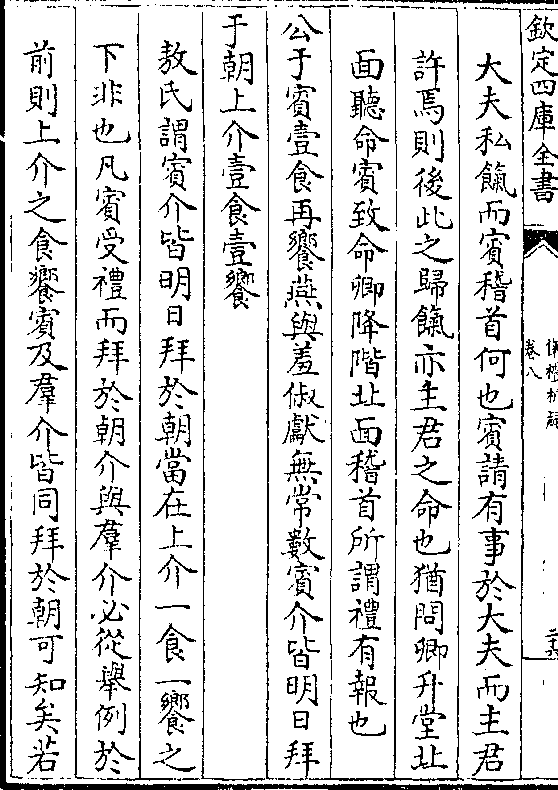 欽定四庫全書
儀禮析疑
卷八
大夫私餼而賓稽首何也賓請有事於大夫而主君
許焉則後此之歸餼亦主君之命也猶問卿升堂北
面聽命賓致命卿降階北面稽首所謂禮有報也
公于賓壹食再饗燕與羞俶獻無常數賓介皆明日拜
于朝上介壹食壹饗
敖氏謂賓介皆明日拜於朝當在上介一食一饗之
下非也凡賓受禮而拜於朝介與羣介必從舉例於
前則上介之食饗賓及羣介皆同拜於朝可知矣若